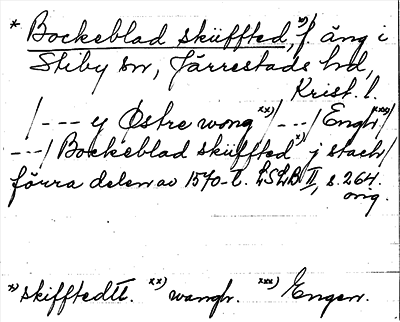 * Bockeblad skuffted,*) f. äng i
Stiby sn, Järrestads hd,
Krist. l.
/--- y Østre wong **)/---/ Enghr ***)/
---/ Bockeblad skuffted *) j stach/
förra delen av 1570-t. LSLB II, s. 264.
orig.
*) skifftedtt. **) wanghr. ***) Engen.